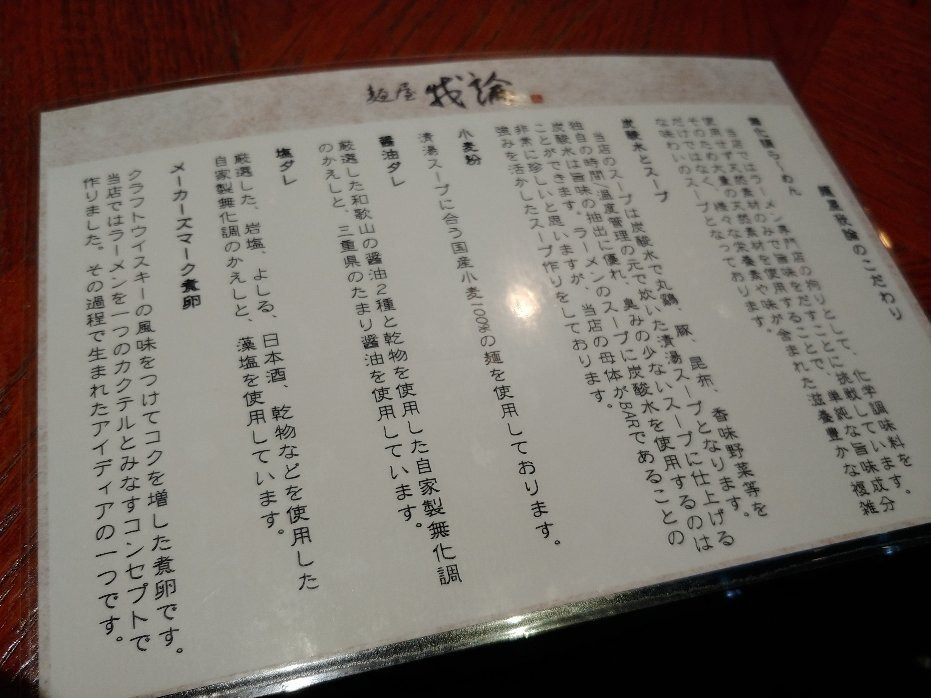 麺屋 我論
麺屋我論のこだわり
無化調らーめん
当店ではラーメン専門店の拘りとして、化学調味料を
使用せず天然素材のみで旨味をだすことに挑戦しています。
そのため大量の天然素材を使用することで、単純な旨味成分
だけではなく、様々な栄養素や味が含まれた滋養豊かな複雑
な味わいのスープとなっております。
炭酸水とスープ
当店のスープは炭酸水で丸鶏、豚、昆布、香味野菜等を
独自の時間、温度管理の元で炊いた清湯スープとなります。
炭酸水は旨味の抽出に優れ、臭みの少ないスープに仕上げる
ことができます。ラーメンのスープに炭酸水を使用するのは
非常に珍しいと思いますが、当店の母体がBARであることの
強みを活かしたスープ作りをしております。
小麦粉
清湯スープに合う国産小麦100%の麺を使用しております。
醤油タレ
厳選した和歌山の醤油2種と乾物を使用した自家製無化調
のかえしと、三重県のたまり醤油を使用しています。
塩タレ
厳選した、岩塩、よしる、日本酒、乾物などを使用した
自家製無化調のかえしと、藻塩を使用しています。
メーカーズマーク煮卵
クラフトウイスキーの風味をつけてコクを増した煮卵です。
当店ではラーメンを一つのカクテルとみなすコンセプトで
作りました。その過程で生まれたアイディアの一つです。